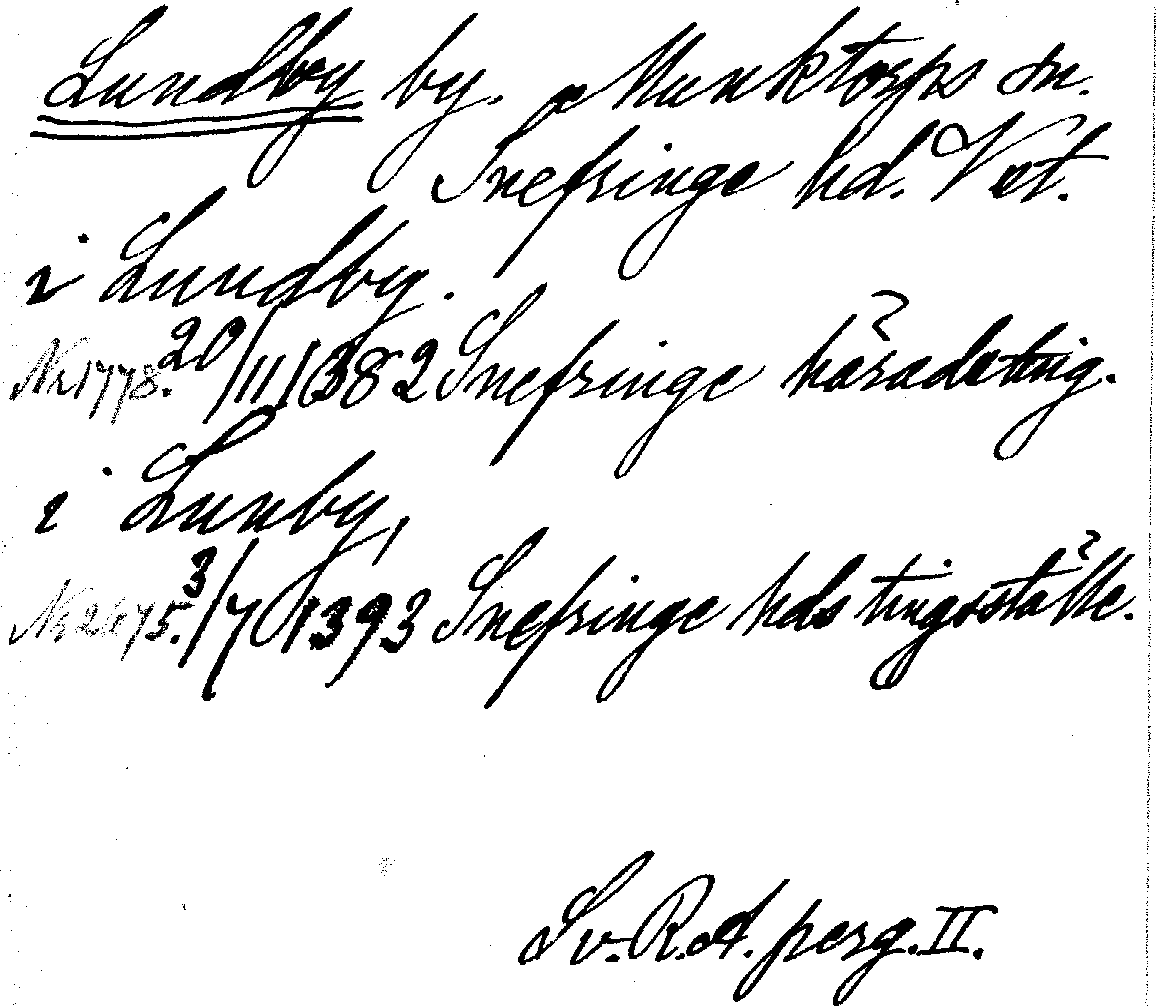 Lundby by. Munktorps sn.
Snefringe hd. Vst.
i Lundby.
Nr 1778. 20/11 1382 Snefringe häradsting.
i Lunby,
3/7 1393 Snefringe hds tingsställe.
Sv. R. A. perg. II.